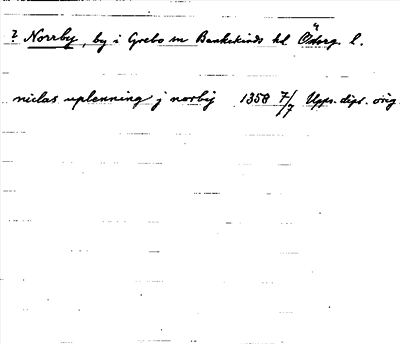 ? Norrby, by i Grebo sn Bankekinds hd Österg. l.
niclas uplenning j norby 1358 7/7 Upps. dipl. orig.